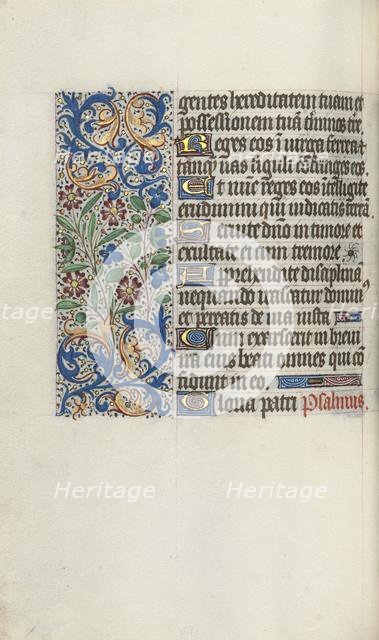 gentes hereditatem tuam et
possessionem tuā t̄minos terre.
Reges eos i virga ferrea ⁊
tamq̄ vas figuli cōfringes eos.
Et nūc reges eos itelligite
erudimini qui iudicatis terrā.
Seruite dn̄o in timore et
exultate ei cum tremore
Apprehendite disciplinā
nequando irascatur domin⁹
et pereatis de via iusta.
Cum exarserit in breui
ira eius beati omnes qui cō
fidunt in eo.
Gloria patri Psalmus.
Heritage Heritage
Heritage Heritage